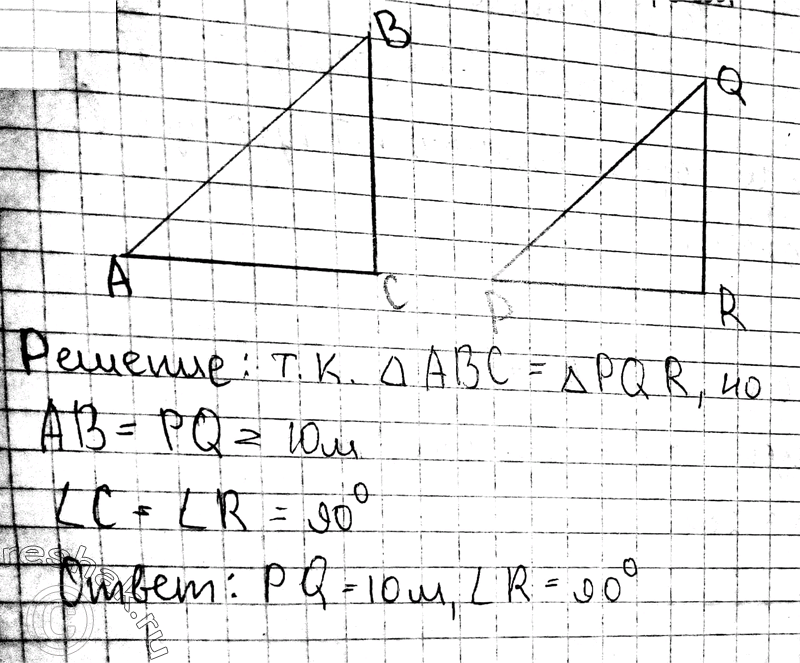 B
Q
A
C
P
R
Решение: т.к. △ABC = △PQR, но
AB = PQ = 10м
∠C = ∠R = 90⁰
Ответ: PQ = 10м, ∠R = 90⁰
reshak.ru
©